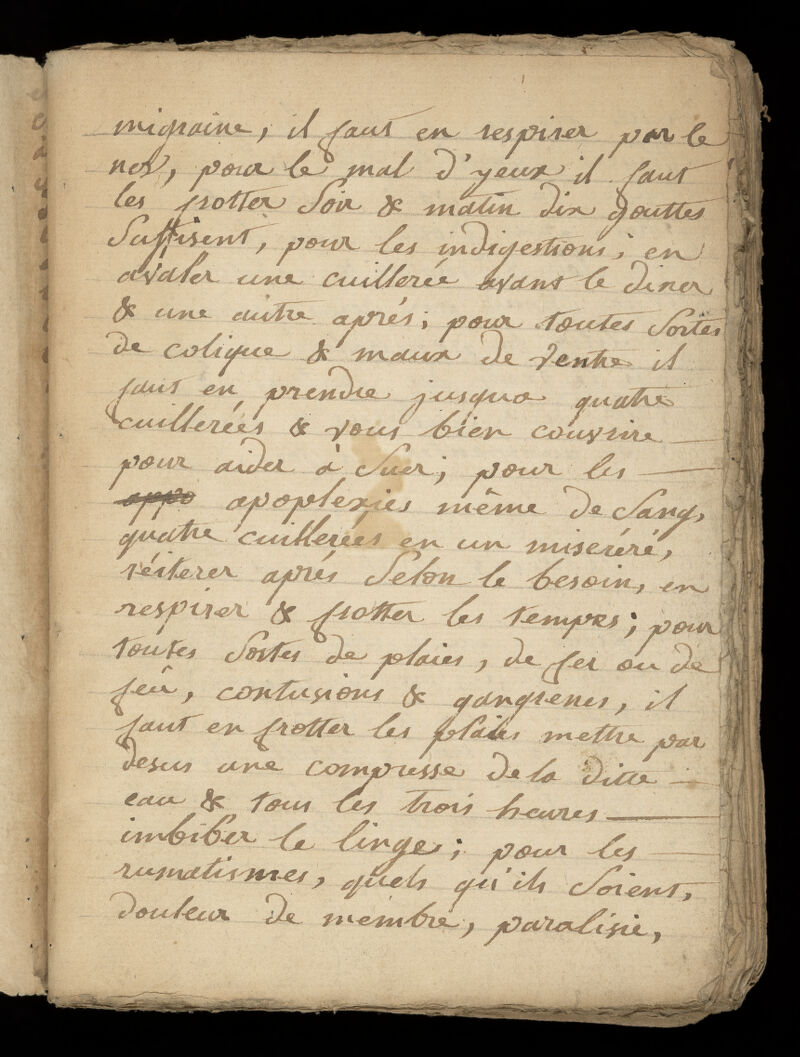 migraine, il faut en respirer par le
nés, pour le mal d'yeux il faut
les frotter Soir & matin dix gouttes
Suffisent, pour les indigestions; en
avaler une cuillerée avant le diner
& une autre aprés; pour toutes Sortes
de colique & maux de ventre il
faut en prendre jusqua quatre
cuillereés & vous bien couvrire
pour aider à Suer; pour les
appo apoplexies même de Sang,
quatre cuillereés en un miseréré,
réiterer aprés Selon le besoin, en
respirer & frotter les tempes; pour
toutes Sortes de plaies, de fer ou de
feu, contusions & gangrenes, il
faut en frotter les plaies mettre par
desus une compresse dela ditte
eau & tous les trois heures
imbiber le linge; pour les
rumatismes, quels qu'ils Soient,
douleur de membre, paralisie,